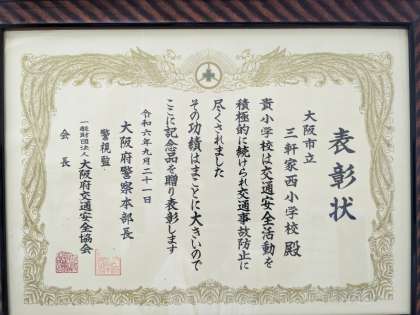 表彰状
大阪市立
三軒家西小学校 殿
貴小学校は交通安全活動を
積極的に続けられ交通事故防止に
尽くされました
その功績はまことに大きいので
ここに記念品を贈り表彰します
令和六年九月二十一日
大阪府警察本部長
警視監
一般財団法人 大阪府交通安全協会
会長